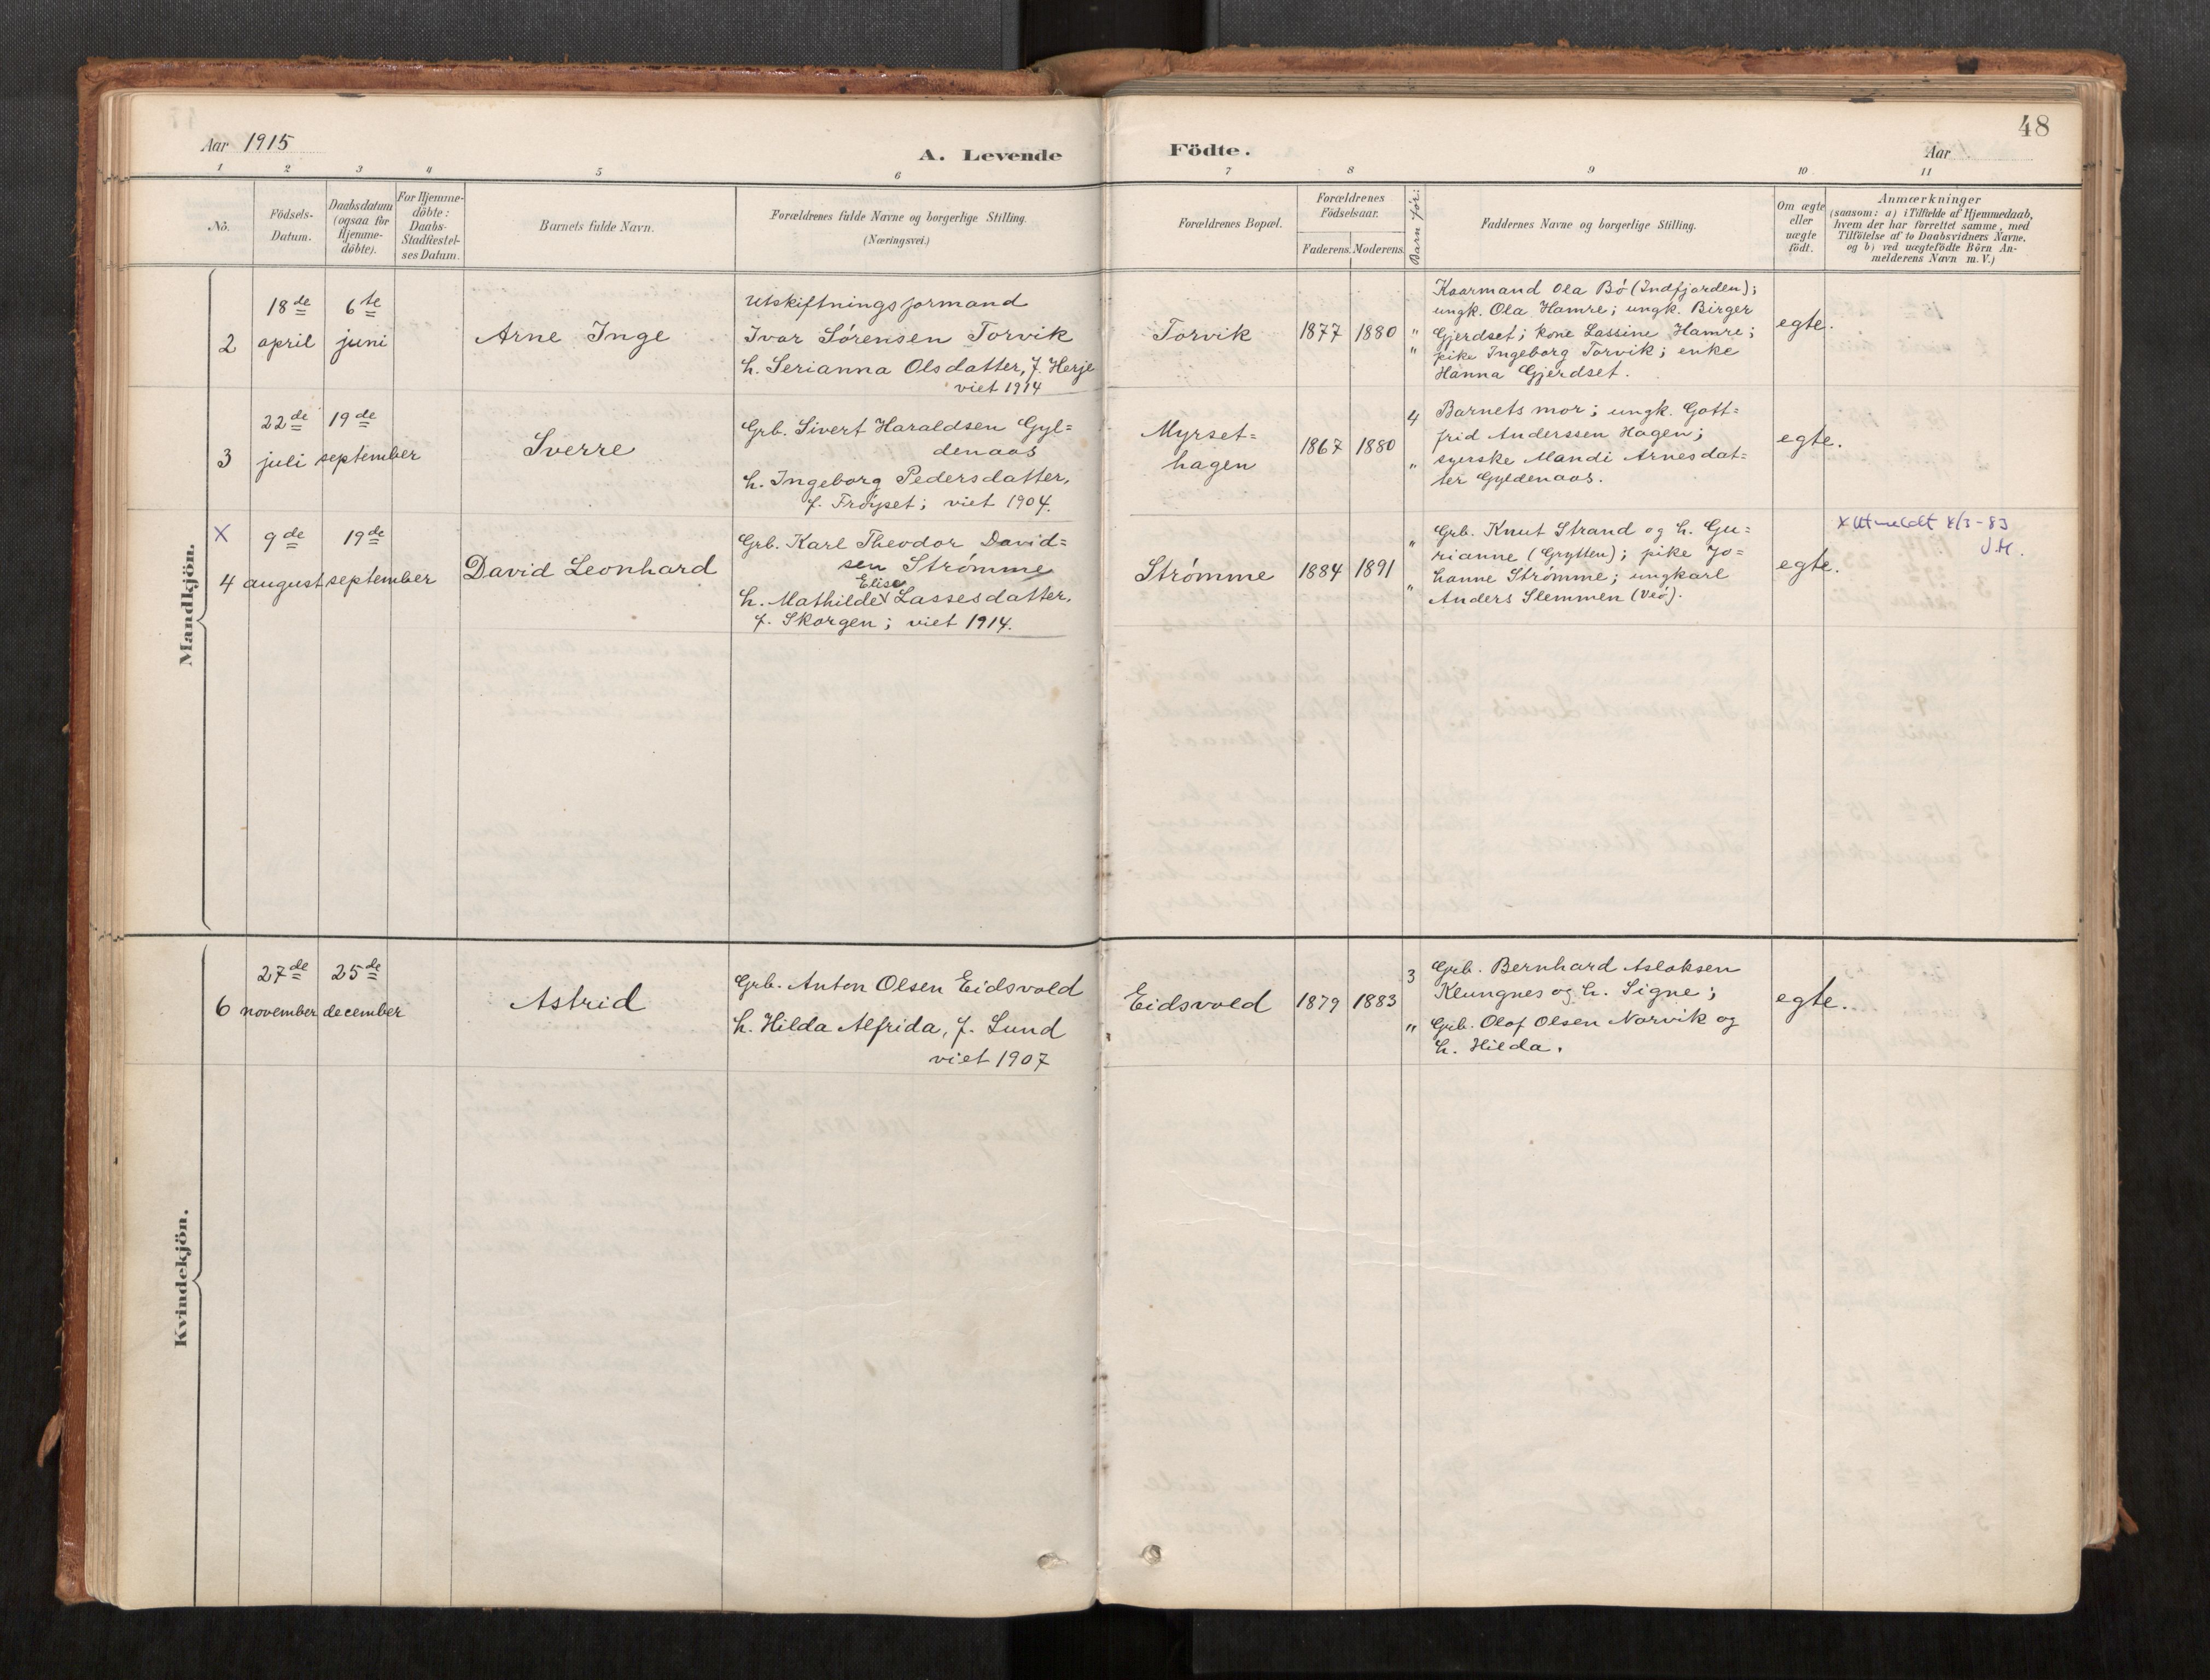 48
Aar 1915
A. Levende Födte.
Aar
1 2 3 4 5 6 7 8 9 10 11
No.
Födsels-
Datum.
Daabsdatum
(ogsaa for
Hjemme-
döbte).
For Hjemme-
döbte:
Daabs-
Stadfæstel-
ses Datum.
Barnets fulde Navn.
Forældrenes fulde Navne og borgerlige Stilling.
(Næringsvei.)
Forældrenes Bopæl.
Forældrenes
Födselsaar.
Faderens. Moderens.
Barn før:
Faddernes Navne og borgerlige Stilling.
Om ægte
eller
uægte
födt.
Anmærkninger
(saasom: a) i Tilfælde af Hjemmedaab,
hvem der har forrettet samme, med
Tilföielse af to Daabsvidners Navne,
og b) ved uægtefödte Börn An-
melderens Navn m. V.)
Mandkjön.
2
18de
april
6te
juni
Arne Inge
Utskiftningsformand
Ivar Sørensen Torvik
h. Serianna Olsdatter, f. Herje
viet 1914
Torvik
1877 1880
"
"
Kaarmand Ola Bö (Indfjorden);
ungk. Ola Hamre; ungk. Birger
Gjerdset; kone Lassine Hamre;
pike Ingeborg Torvik; enke
Hanna Gjerdset.
egte.
3
22de
juli
19de
september
Sverre
Grb. Sivert Haraldsen Gyl=
denaas
h. Ingeborg Pedersdatter,
f. Frøyset; viet 1904.
Myrset=
hagen
1867 1880
4
"
Barnets mor; ungk. Gott=
frid Anderssen Hagen;
syerske Mandi Arnesdat=
ter Gyldenaas.
egte.
X
4
9de
august
19de
september
David Leonhard
Grb. Karl Theodor David=
sen Strømme
Elise
h. Mathilde Lassesdatter,
f. Skorgen; viet 1914.
Strømme
1884 1891
"
"
Grb. Knut Strand og h. Gu=
rianne (Grytten); pike Jo=
hanne Strømme; ungkarl
Anders Slemmen (Veö).
egte.
x Utmeldt 4/3-83
J.H.
Kvindekjön.
6
27de
november
25de
december
Astrid
Grb. Anton Olsen Eidsvold
h. Hilda Alfrida, f. Lund
viet 1907
Eidsvold
1879 1883
3
"
Grb. Bernhard Aslaksen
Klungnes og h. Signe;
Grb. Olof Olsen Norvik og
h. Hilda.
egte.